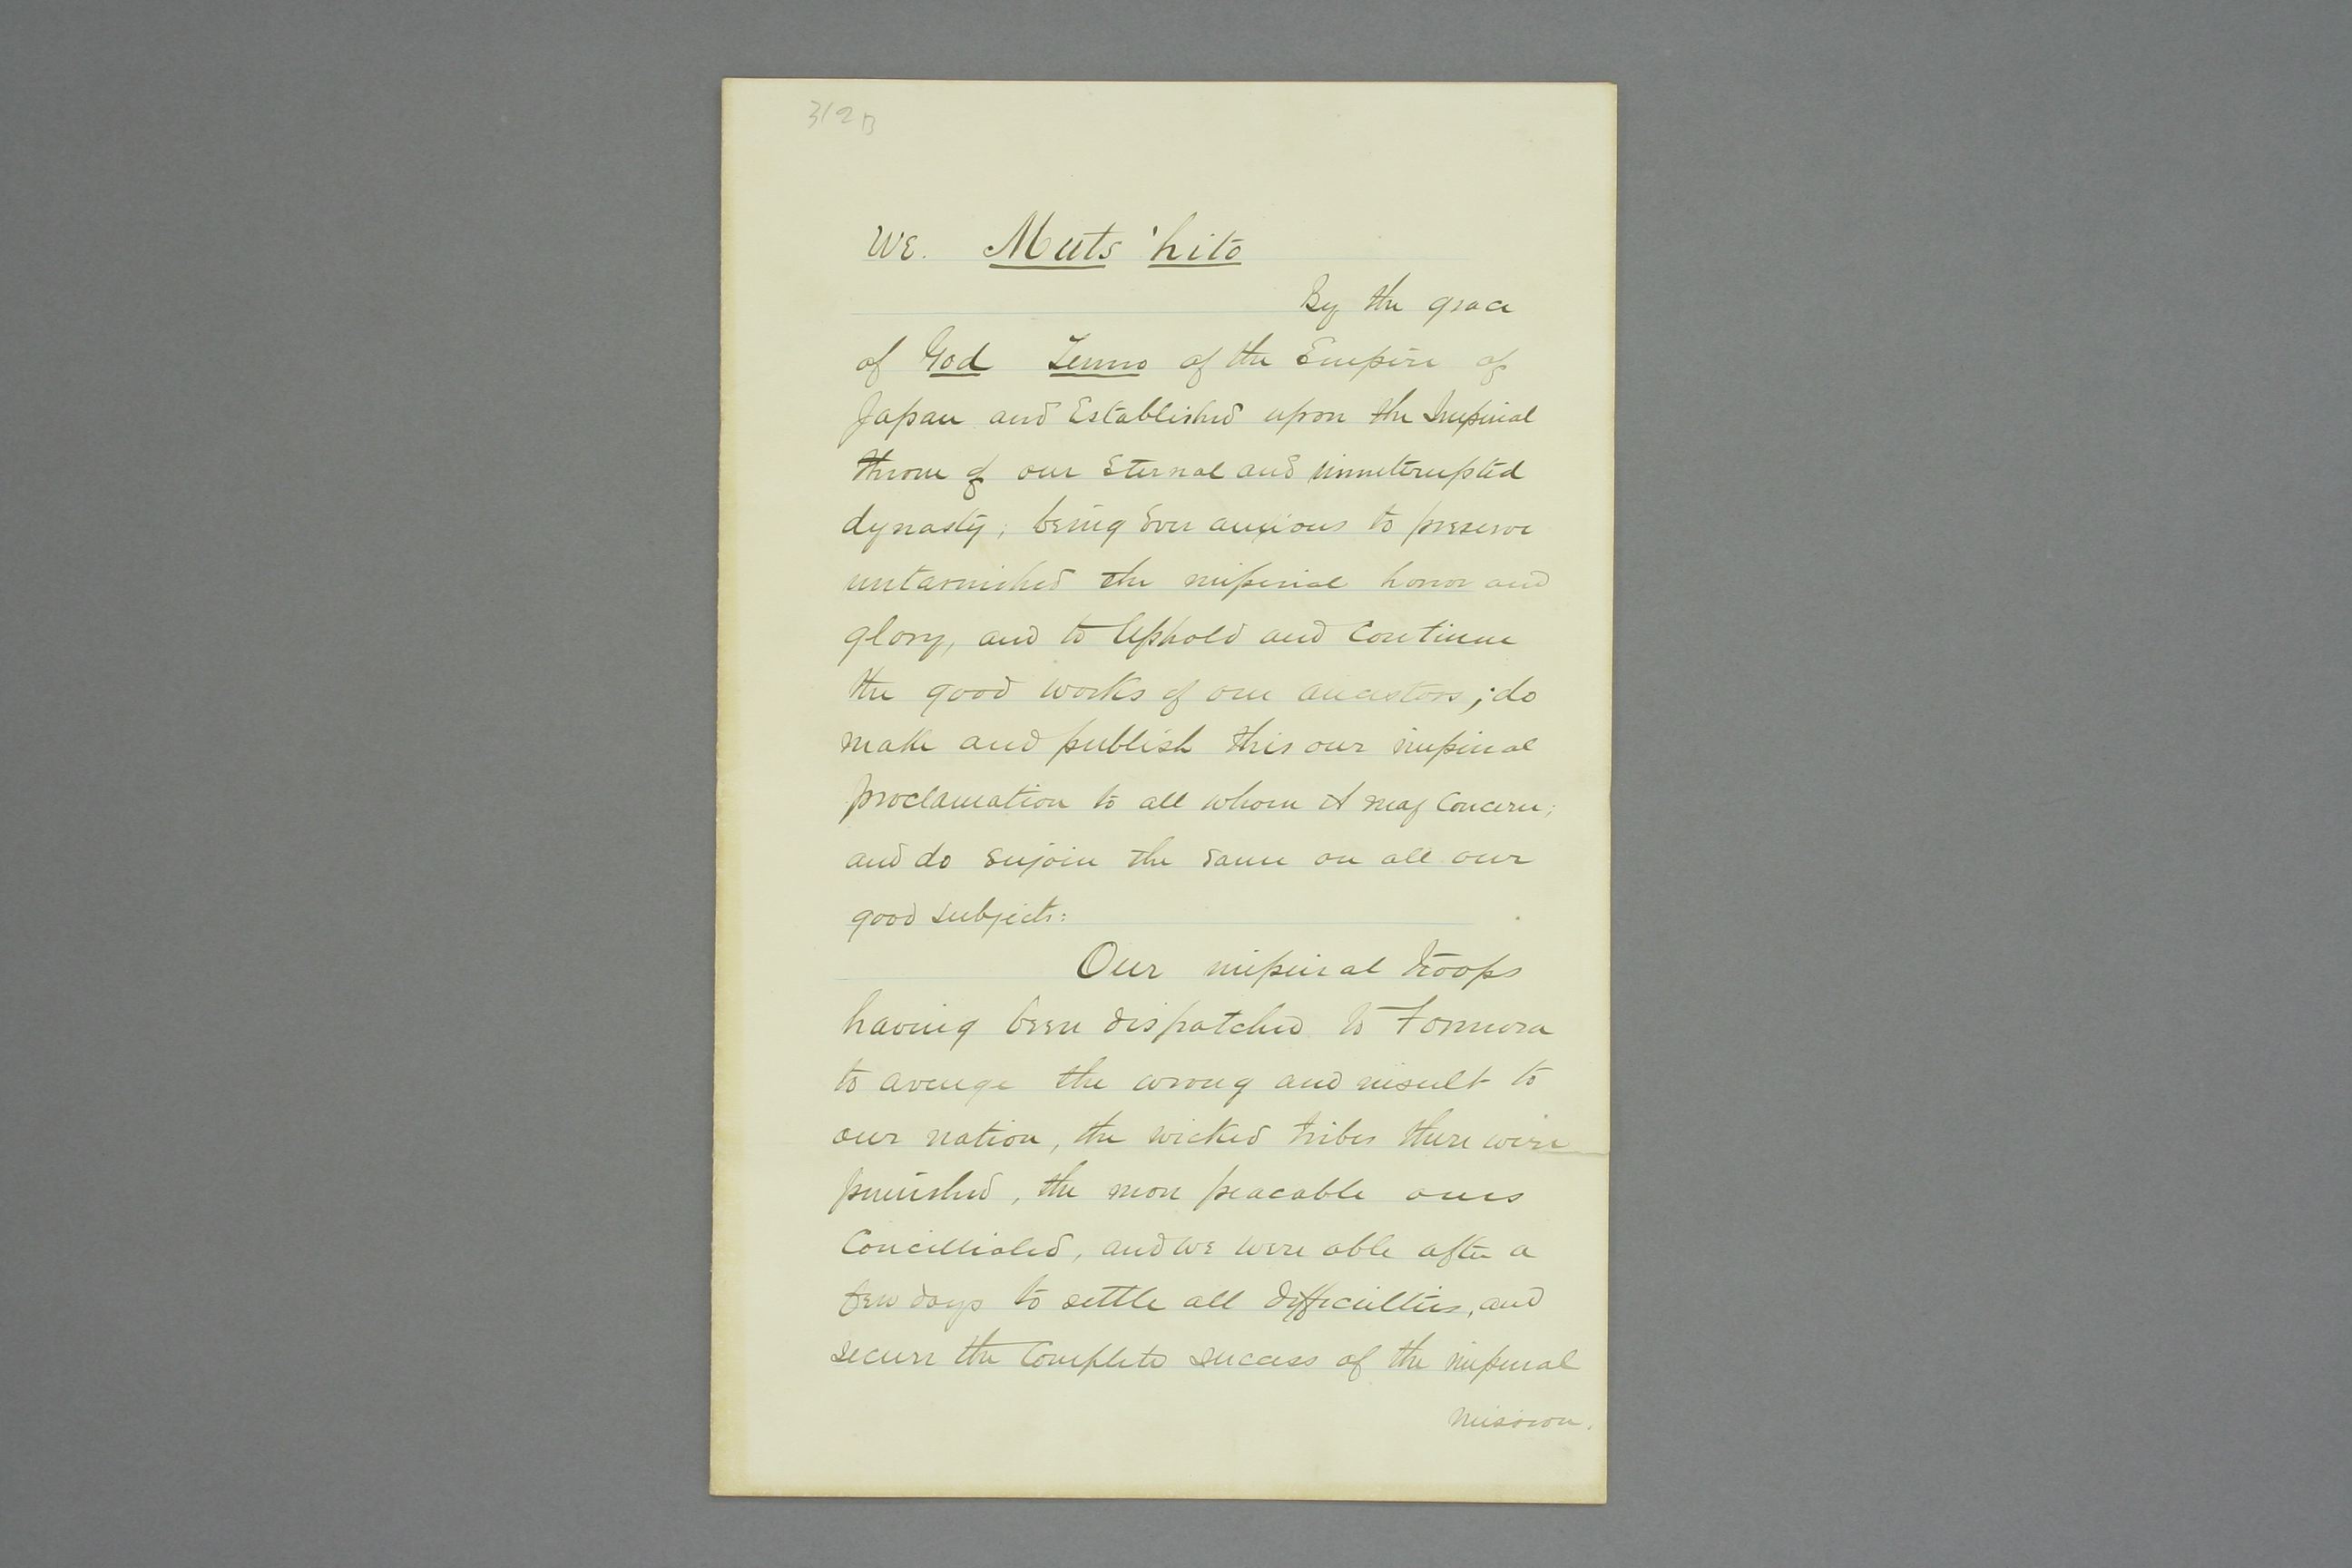 312 B
WE. Muts 'hito
By the grace
of God Tenno of the Empire of
Japan and Established upon the Imperial
throne of our Eternal and uninterupted
dynasty; being Ever anxious to preserve
untarnished the imperial honor and
glory, and to Uphold and Continue
the good works of our ancestors; do
make and publish this our imperial
proclamation to all whom it may Concern;
and do enjoin the same on all our
good subjects:
Our imperial troops
having been dispatched to Formosa
to avenge the wrong and insult to
our nation, the wicked tribes there were
punished, the more peacable ones
Concilliated, and WE were able after a
few days to settle all difficulties, and
secure the Complete success of the imperial
mission.